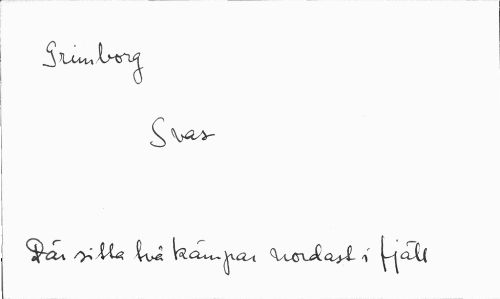 Grimborg
Svas
Där sitta två kämpar nordast i fjäll